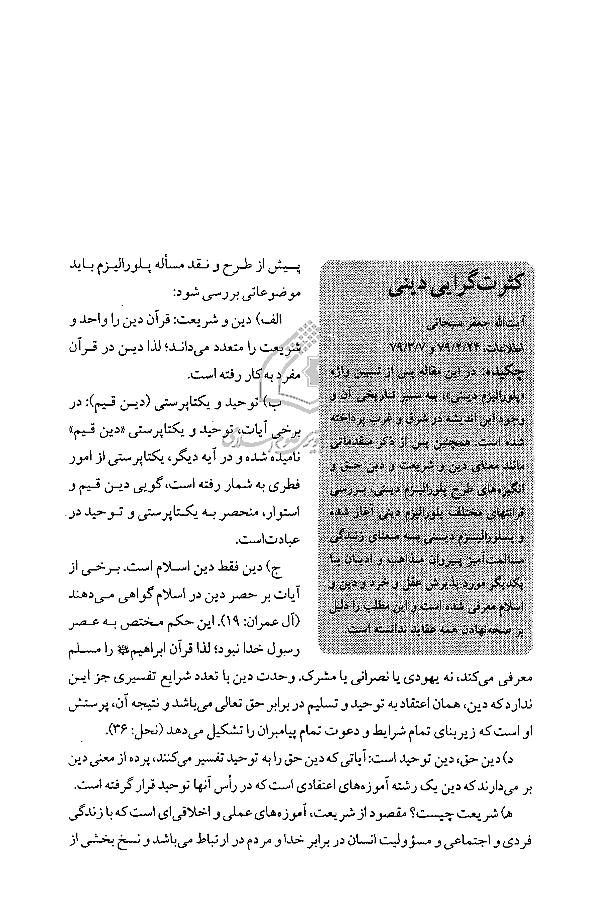 کثرت‌گرایی دینی
آیت‌الله جعفر سبحانی
اطلاعات، ۷۹/۲/۲۴ و ۷۹/۳/۷
چکیده: در این مقاله پس از تبیین واژه
«پلورالیزم دینی»، به سیر تاریخی آن و
وجود این اندیشه در شرق و غرب پرداخته
شده است. همچنین پس از ذکر مقدماتی
مانند معنای دین و شریعت و دین حق و
انگیزه‌های طرح پلورالیزم دینی، بررسی
قرائتهای مختلف پلورالیزم دینی آغاز شده
و پلورالیزم دینی به معنای زندگی
مسالمت‌آمیز پیروان مذاهب و ادیان با
یکدیگر مورد پذیرش عقل و خرد و دین و
اسلام معرفی شده است و این مطلب را دلیل
بر صحه‌نهادن همه عقاید ندانسته است.
پیش از طرح و نقد مسأله پلورالیزم باید
موضوعاتی بررسی شود:
الف) دین و شریعت: قرآن دین را واحد و
شریعت را متعدد می‌داند؛ لذا دین در قرآن
مفرد به کار رفته است.
ب) توحید و یکتاپرستی (دین قیم): در
برخی آیات، توحید و یکتاپرستی «دین قیم»
نامیده شده و در آیه دیگر، یکتاپرستی از امور
فطری به شمار رفته است، گویی دین قیم و
استوار، منحصر به یکتاپرستی و توحید در
عبادت‌است.
ج) دین فقط دین اسلام است. برخی از
آیات بر حصر دین در اسلام گواهی می‌دهند
(آل عمران: ۱۹). این حکم مختص به عصر
رسول خدا نبود؛ لذا قرآن ابراهیم را مسلم
معرفی می‌کند، نه یهودی یا نصرانی یا مشرک. وحدت دین با تعدد شرایع تفسیری جز این
ندارد که دین، همان اعتقاد به توحید و تسلیم در برابر حق تعالی می‌باشد و نتیجه آن، پرستش
او است که زیربنای تمام شرایط و دعوت تمام پیامبران را تشکیل می‌دهد (نحل: ۳۶).
د) دین حق، دین توحید است: آیاتی که دین حق را به توحید تفسیر می‌کنند، پرده از معنی دین
بر می‌دارند که دین یک رشته آموزه‌های اعتقادی است که در رأس آنها توحید قرار گرفته است.
ه‍) شریعت چیست؟ مقصود از شریعت، آموزه‌های عملی و اخلاقی‌ای است که با زندگی
فردی و اجتماعی و مسؤولیت انسان در برابر خدا و مردم در ارتباط می‌باشد و نسخ بخشی از